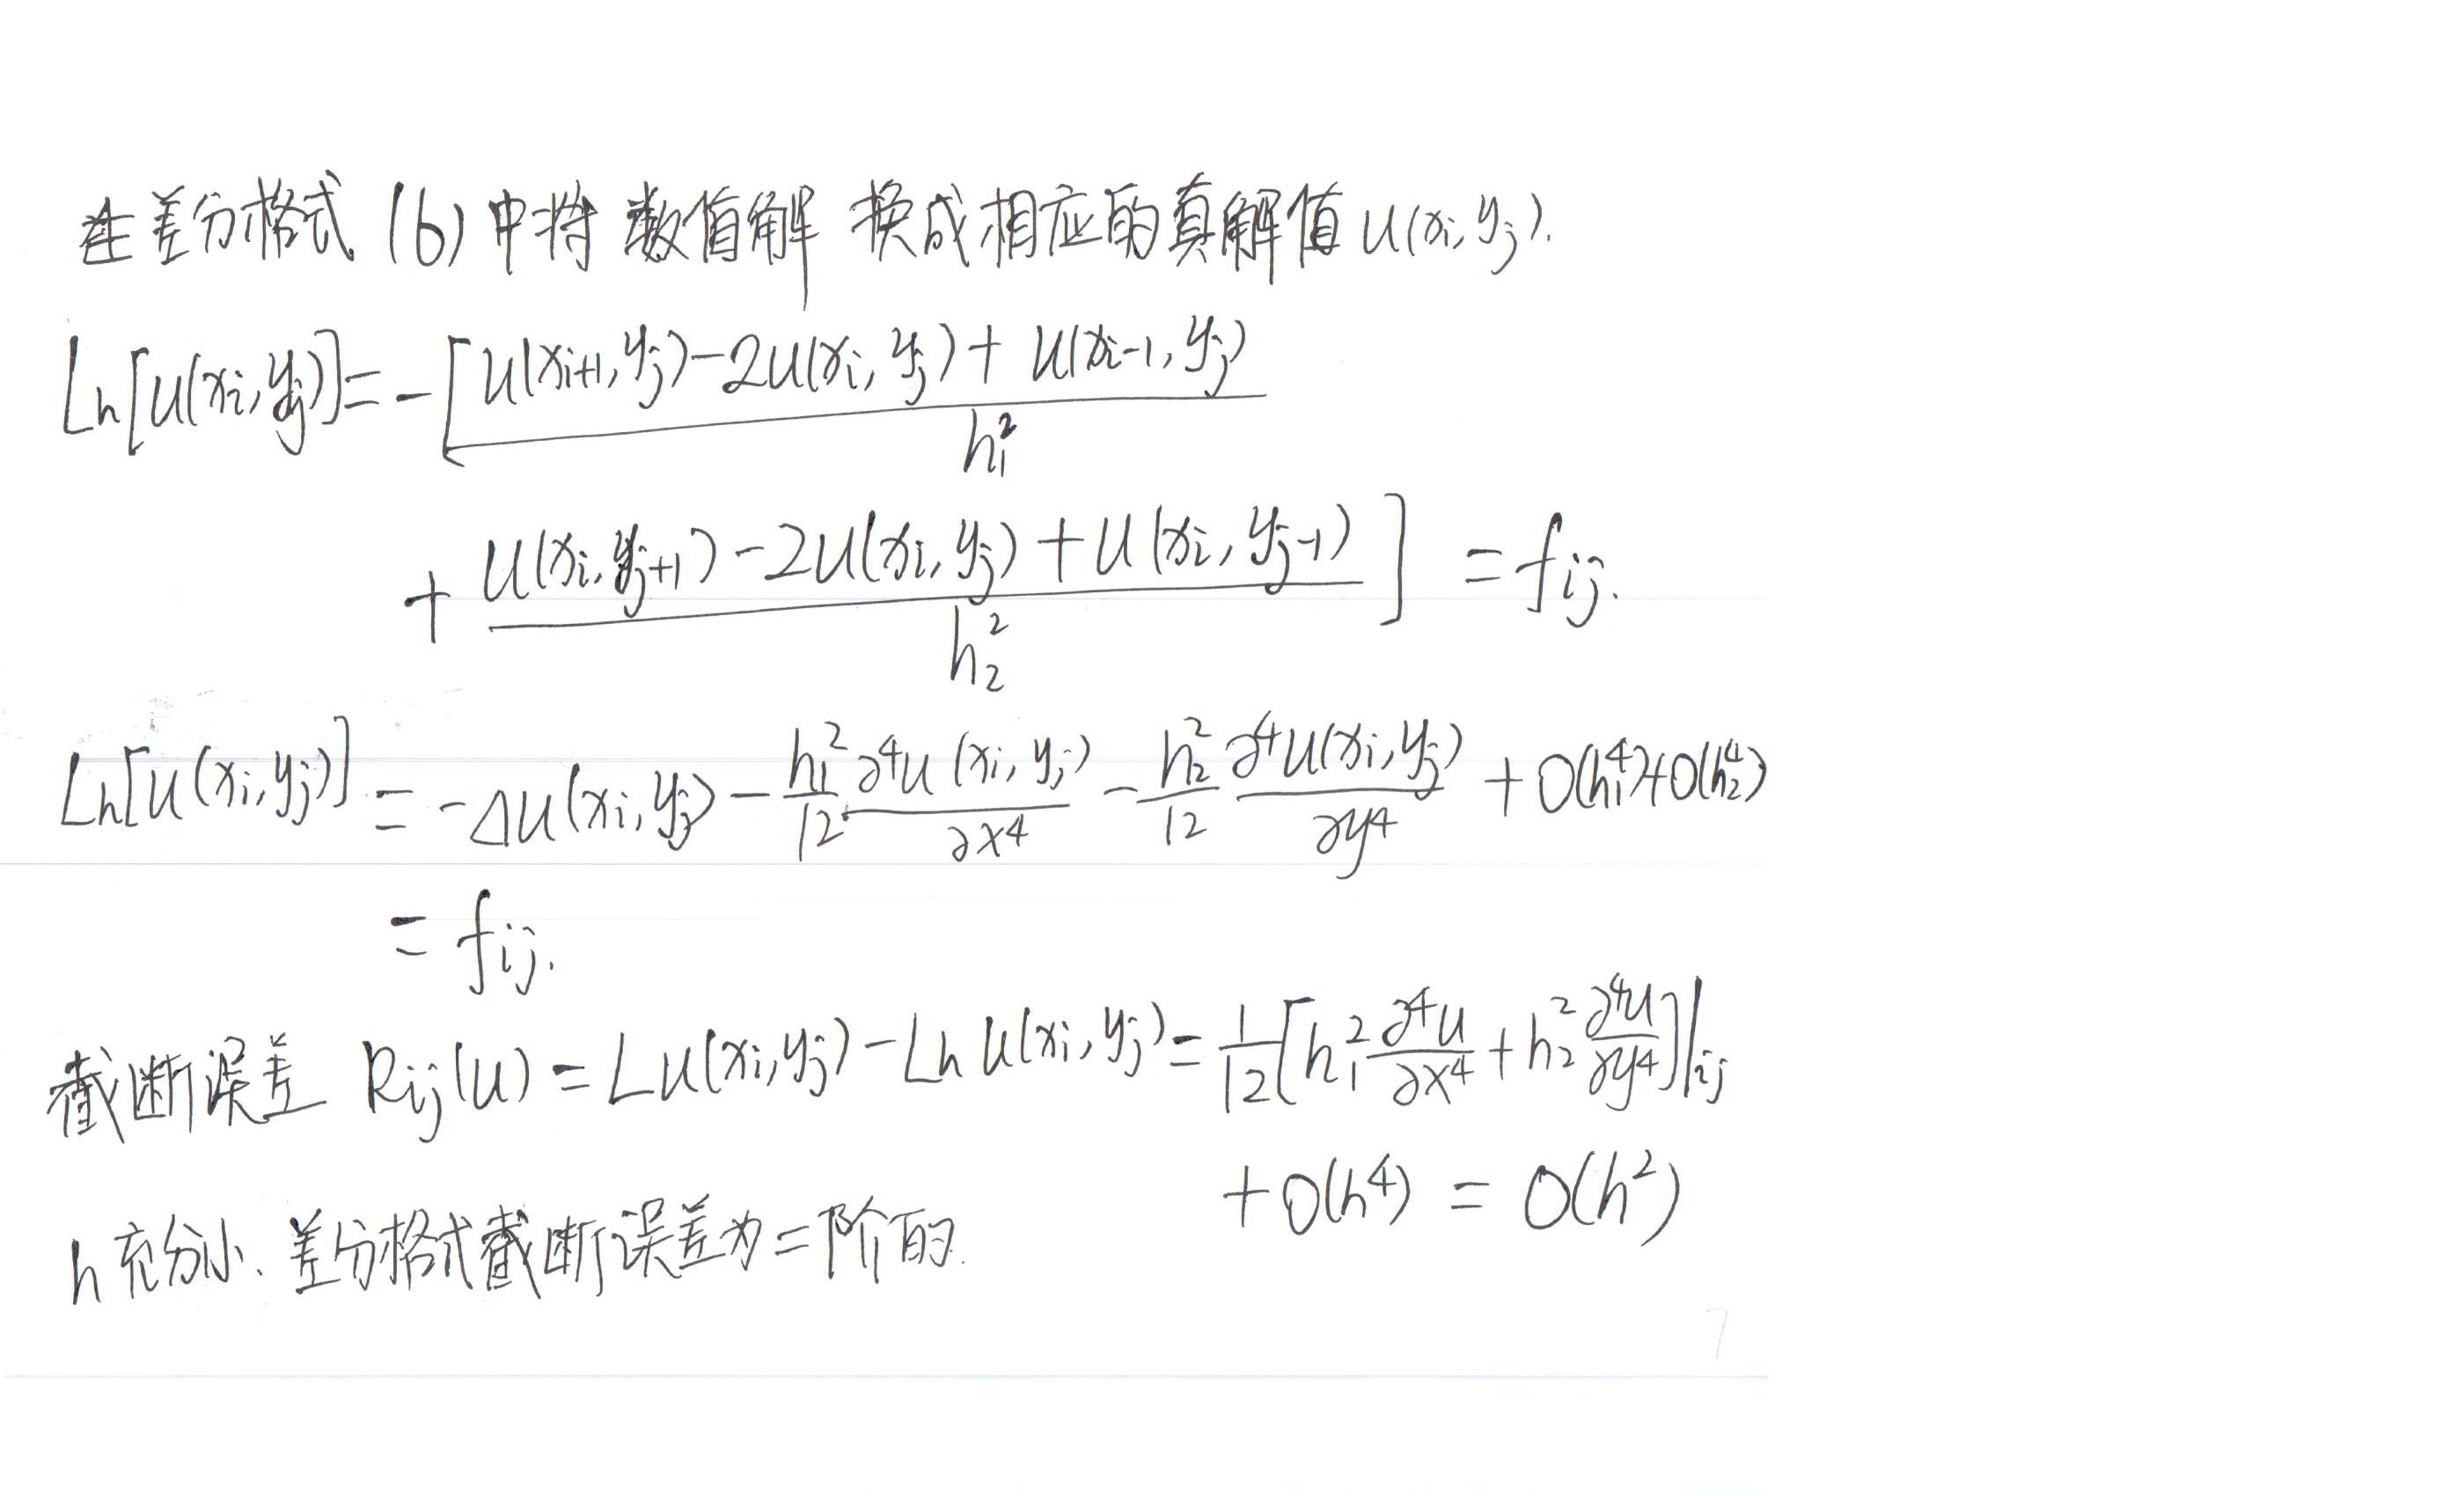 在差分格式 (6) 中将 数值解 换成相应的真解值 u(xi, yj).
Lh[u(xi, yj)] = -[ (u(xi+1, yj) - 2u(xi, yj) + u(xi-1, yj)) / h₁²
+ (u(xi, yj+1) - 2u(xi, yj) + u(xi, yj-1)) / h₂² ] = fij.
Lh[u(xi, yj)] = -Δu(xi, yj) - h₁²/12 ∂⁴u(xi, yj)/∂x⁴ - h₂²/12 ∂⁴u(xi, yj)/∂y⁴ + O(h₁⁴)+O(h₂⁴)
= fij.
截断误差 Rij(u) = Lu(xi, yj) - Lh u(xi, yj) = 1/12 [h₁² ∂⁴u/∂x⁴ + h₂² ∂⁴u/∂y⁴]|ij
+ O(h⁴) = O(h²)
h 充分小、差分格式截断误差为二阶的.